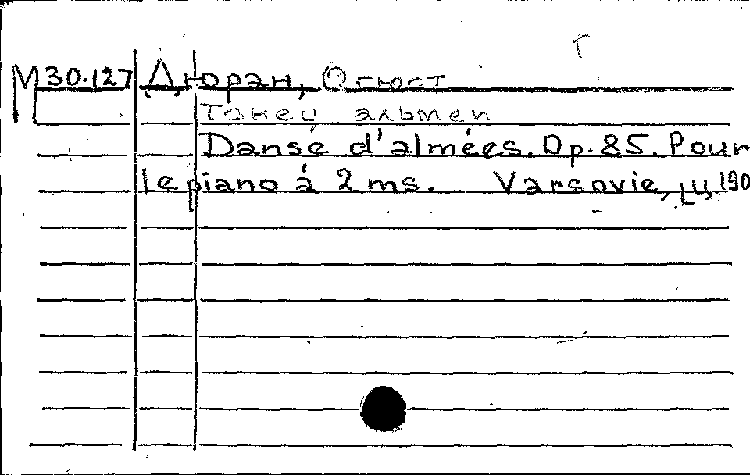 Г
М 30.127 Дюран, Огюст
Танец альмеи
Danse d'almées. Op. 85. Pour
le piano à 2 ms. Varsovie, 190